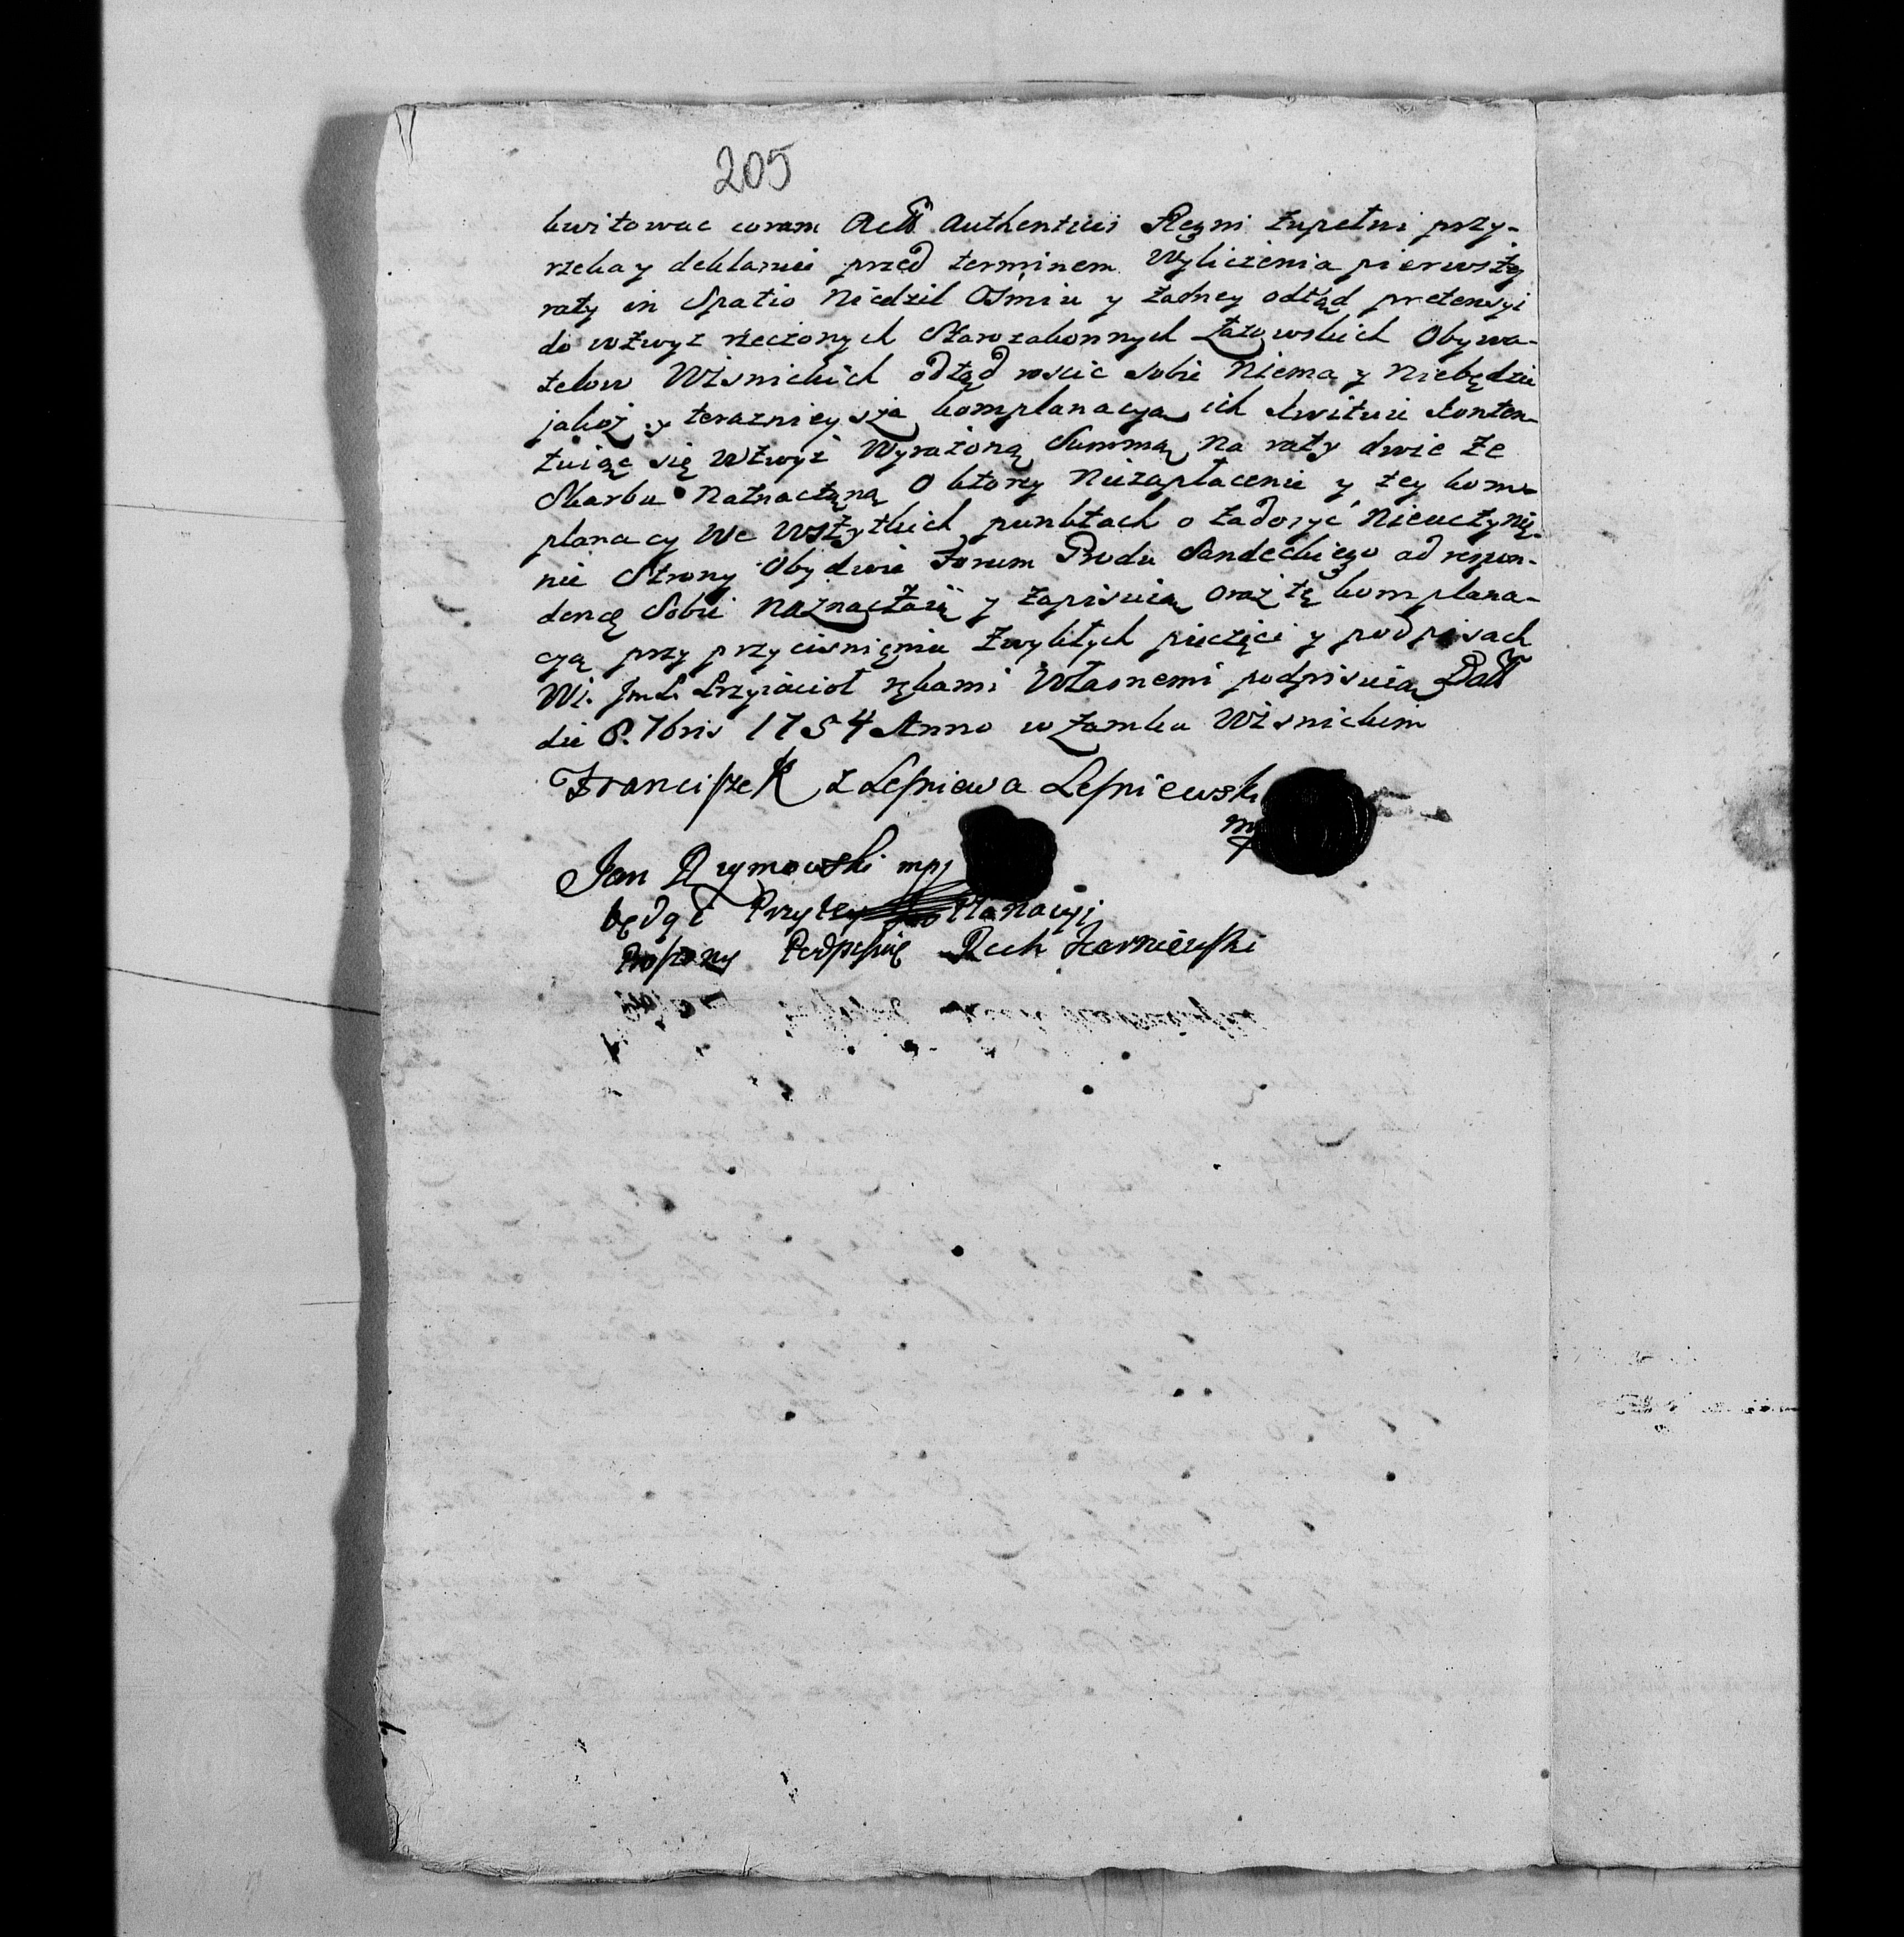 205
kwitowac coram Actis Authenticis Regni zupełni przy-
rzeka y deklaruie przed terminem Wyliczenia pierwszey
raty in Spatio Niedziel Osmiu y żadney odtąd pretensyi
do wzwyz rzeczonych Starozakonnych Łazowskich Obywa-
telow Wisnickich odtąd roscic sobie Niema y Niebędzie
jakoż y teraznieysza komplanacya ich kwituie konten-
tuiąc się wzwyż Wyrażoną Summą na raty dwie ze
Skarbu Naznaczoną O ktorey Niezapłacenie y tey kom-
planacy We wszytkich punktach o zadosyć Nieuczynie-
nie Strony Obydwie Forum Grodu Sandeckiego ad respon-
dencę Sobie Naznaczaią y zapisuią oraz tę komplana-
cyą przy przycisnięniu zwykłych pieczęci y podpisach
Wi. Jm. Przyiacioł rękami Własnemi podpisuią Datt
die 8. 7bris 1754 Anno w Zamku Wisnickim
Franciszek z Lesniewa Lesniewski
mp
Jan Rymowski mpp
będąc Przytey Planacyi
Proszony Podpisuię Rech